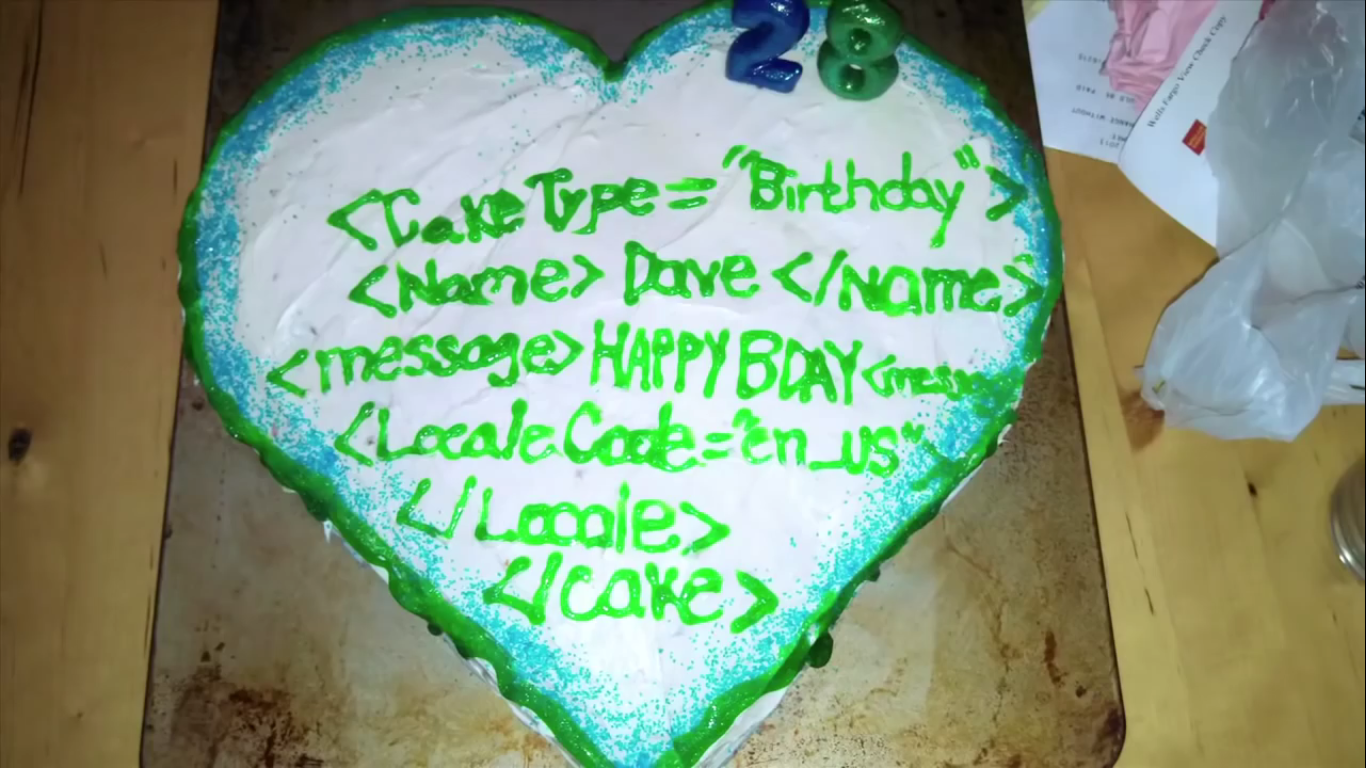 28
<Cake Type="Birthday">
<Name> Dave </Name>
<message> HAPPY BDAY <message
<Locale Code="en_us">
</Locale>
</cake>
Wells Fargo View Check Copy